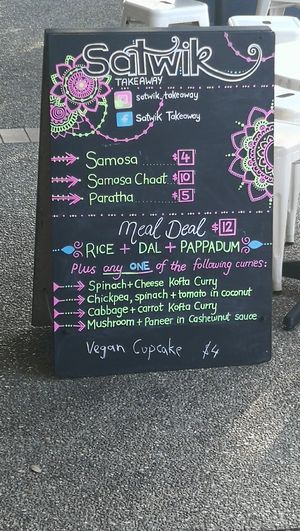 Satwik
TAKEAWAY
satwik_takeaway
Satwik Takeaway
Samosa ........ $4
Samosa Chaat ... $10
Paratha ........ $5
Meal Deal $12
RICE + DAL + PAPPADUM
Plus any ONE of the following curries:
Spinach + Cheese Kofta Curry
Chickpea, spinach + tomato in coconut
Cabbage + carrot Kofta Curry
Mushroom + Paneer in Cashewnut sauce
Vegan Cupcake $4